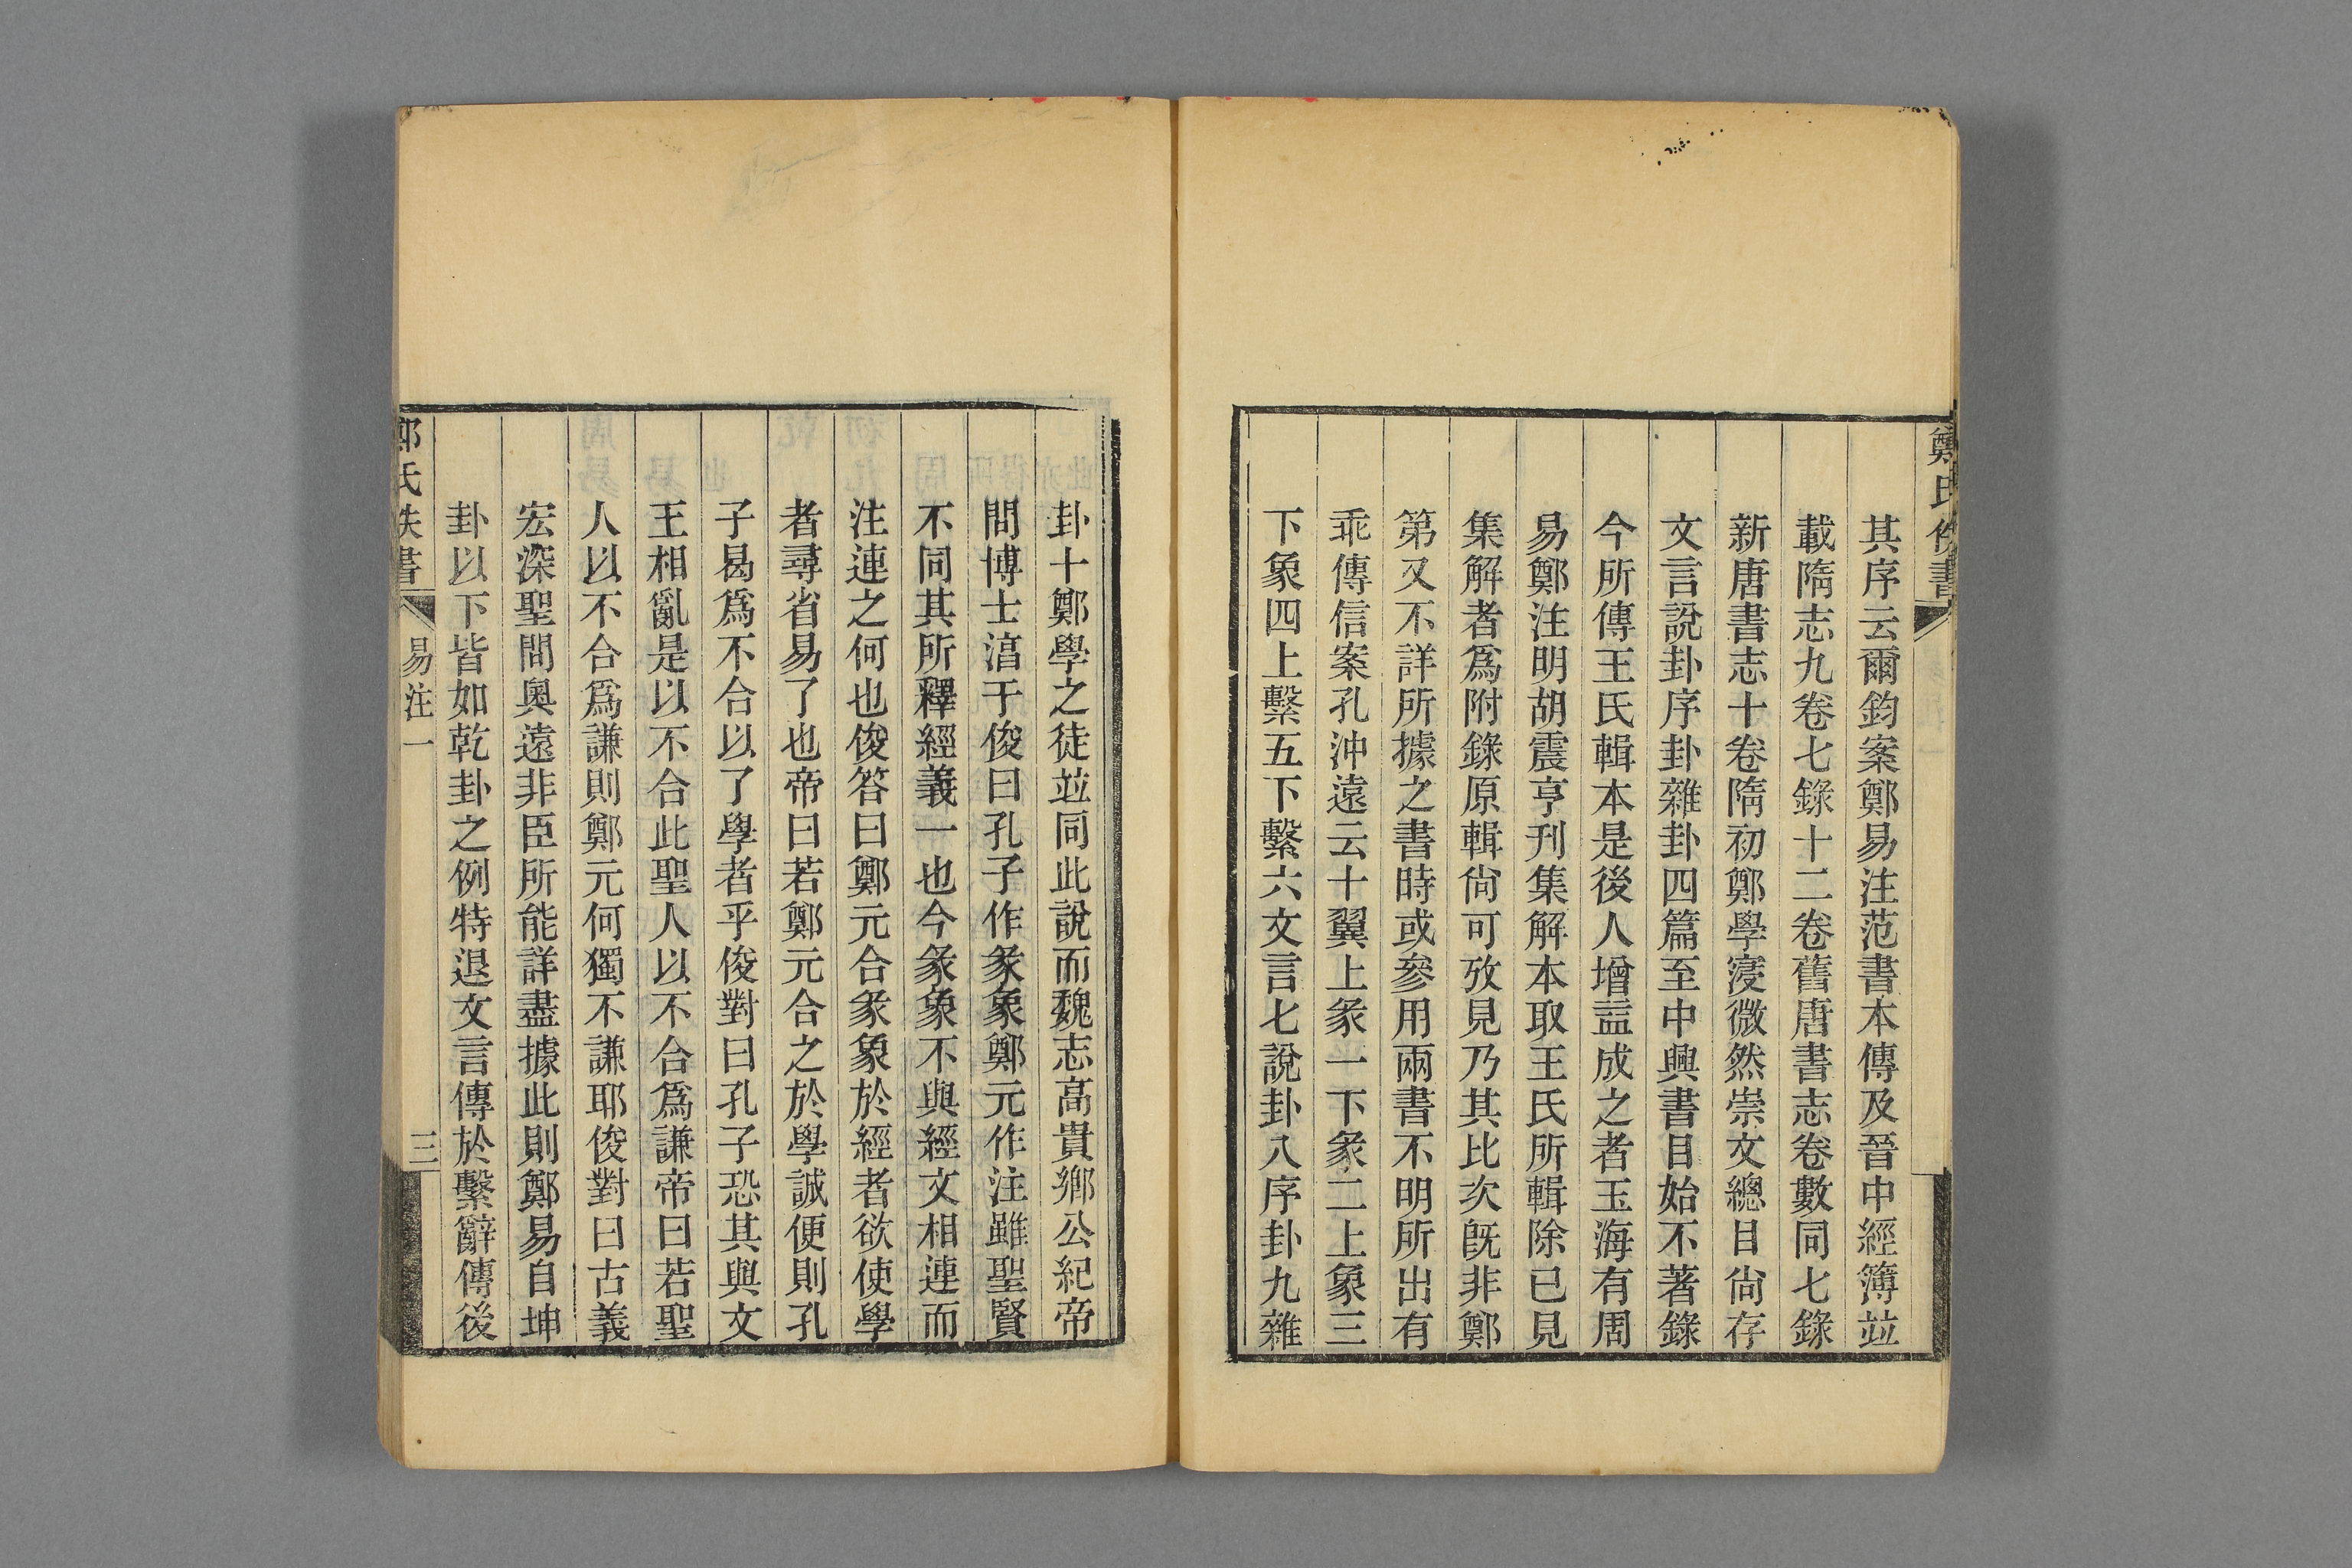 鄭氏佚書
其序云爾鈞案鄭易注范書本傳及晉中經簿竝
載隋志九卷七錄十二卷舊唐書志卷數同七錄
新唐書志十卷隋初鄭學寖微然崇文總目尙存
文言說卦序卦雜卦四篇至中興書目始不著錄
今所傳王氏輯本是後人增益成之者玉海有周
易鄭注明胡震亨刊集解本取王氏所輯除已見
集解者爲附錄原輯尙可攷見乃其比次旣非鄭
第又不詳所據之書時或參用兩書不明所出有
乖傳信案孔沖遠云十翼上彖一下彖二上象三
下象四上繫五下繫六文言七說卦八序卦九雜
卦十鄭學之徒竝同此說而魏志高貴鄉公紀帝
問博士淯于俊曰孔子作彖象鄭元作注雖聖賢
不同其所釋經義一也今彖象不與經文相連而
注連之何也俊答曰鄭元合彖象於經者欲使學
者尋省易了也帝曰若鄭元合之於學誠便則孔
子曷爲不合以了學者乎俊對曰孔子恐其與文
王相亂是以不合此聖人以不合爲謙帝曰若聖
人以不合爲謙則鄭元何獨不謙耶俊對曰古義
宏深聖問奧遠非臣所能詳盡據此則鄭易自坤
卦以下皆如乾卦之例特退文言傳於繫辭傳後
鄭氏佚書
易注一
三